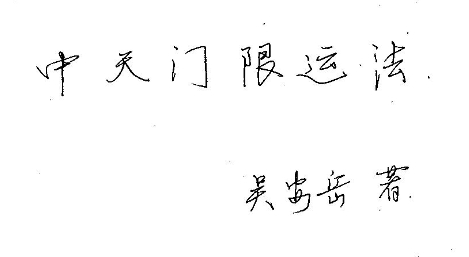 中天门限运法
吴安岳 著